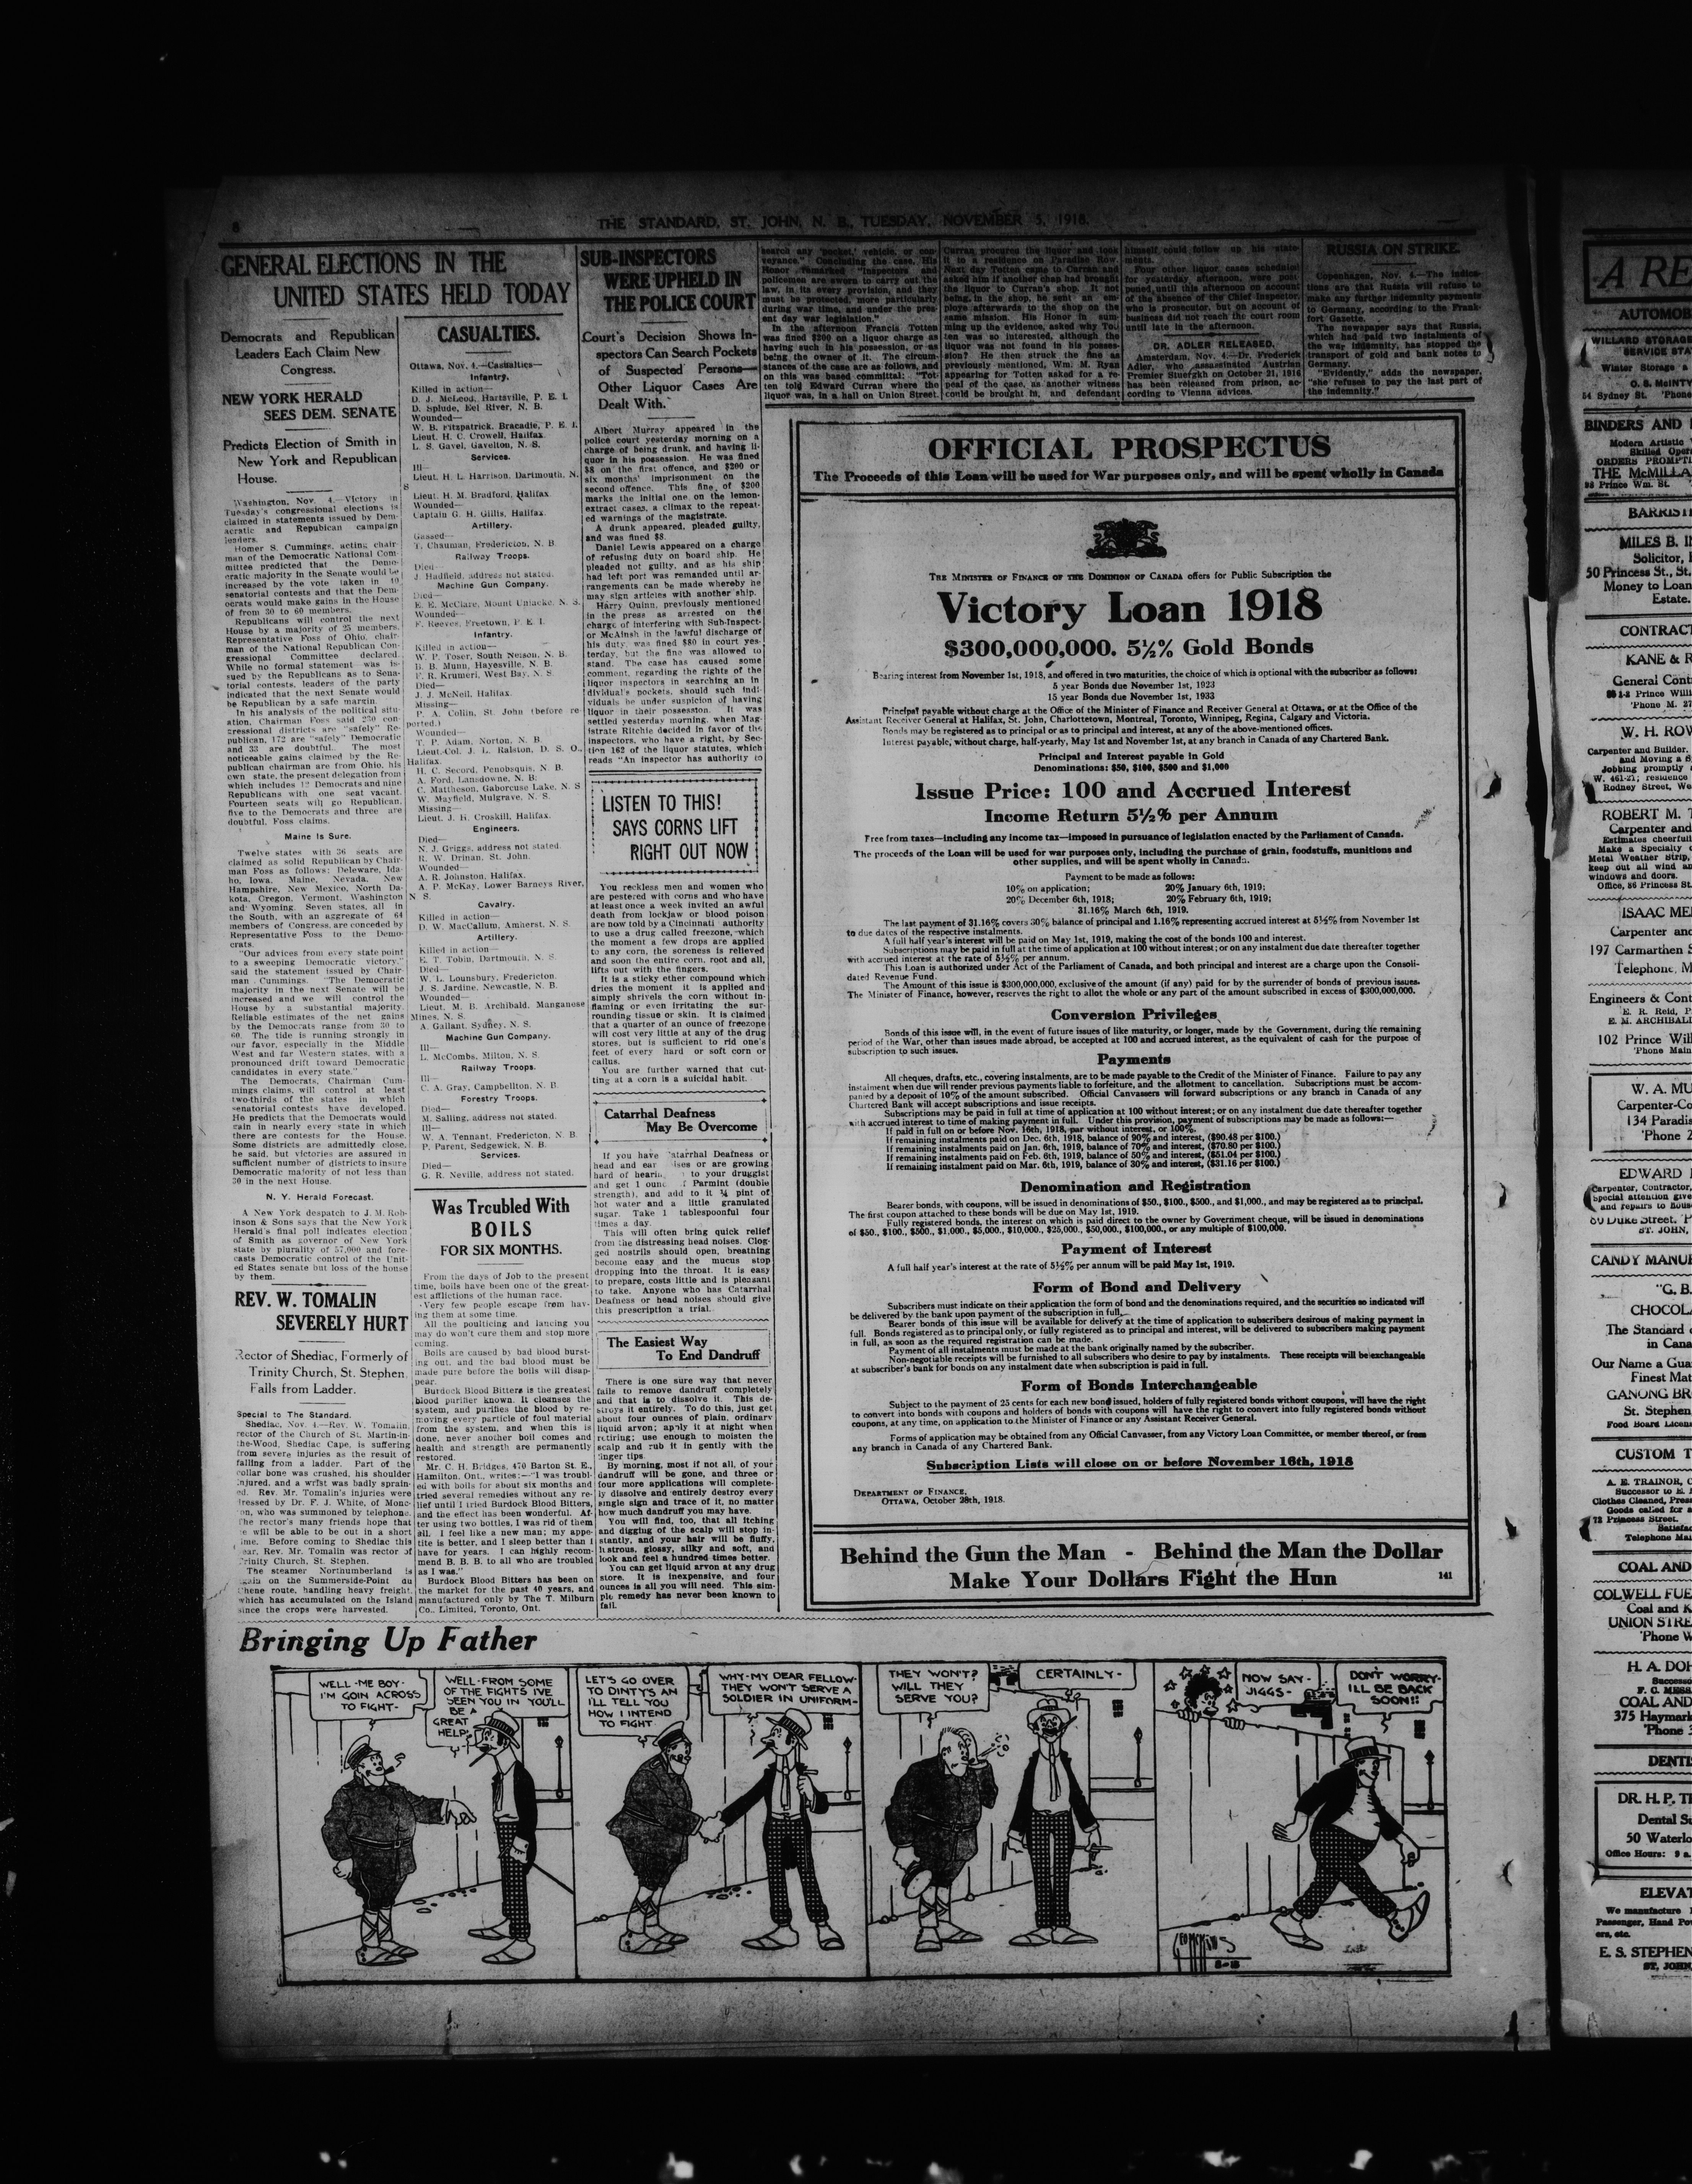 8
THE STANDARD, ST. JOHN, N. B., TUESDAY, NOVEMBER 5, 1918.
GENERAL ELECTIONS IN THE
UNITED STATES HELD TODAY
Democrats and Republican
Leaders Each Claim New
Congress.
NEW YORK HERALD
SEES DEM. SENATE
Predicts Election of Smith in
New York and Republican
House.
Washington, Nov. 4.—Victory in
Tuesday's congressional elections is
claimed in statements issued by Dem-
acratic and Repubican campaign
leaders.
Homer S. Cummings, acting chair-
man of the Democratic National Com-
mittee predicted that the Demo-
cratic majority in the Senate would be
increased by the vote taken in 10
senatorial contests and that the Dem-
ocrats would make gains in the House
of from 30 to 60 members.
Republicans will control the next
House by a majority of 25 members,
Representative Foss of Ohio, chair-
man of the National Republican Con-
gressional Committee declared.
While no formal statement was is-
sued by the Republicans as to Sena-
torial contests, leaders of the party
indicated that the next Senate would
be Republican by a safe margin.
In his analysis of the political situ-
ation, Chairman Foss said 230 con-
gressional districts are "safely" Re-
publican, 172 are "safely" Democratic
and 33 are doubtful. The most
noticeable gains claimed by the Re-
publican chairman are from Ohio, his
own state, the present delegation from
which includes 12 Democrats and nine
Republicans with one seat vacant.
Fourteen seats will go Republican,
five to the Democrats and three are
doubtful, Foss claims.
Maine Is Sure.
Twelve states with 36 seats are
claimed as solid Republican by Chair-
man Foss as follows: Deleware, Ida-
ho, Iowa, Maine, Nevada, New
Hampshire, New Mexico, North Da-
kota, Oregon, Vermont, Washington
and Wyoming. Seven states, all in
the South, with an aggregate of 64
members of Congress, are conceded by
Representative Foss to the Demo-
crats.
"Our advices from every state point
to a sweeping Democratic victory,"
said the statement issued by Chair-
man Cummings. "The Democratic
majority in the next Senate will be
increased and we will control the
House by a substantial majority.
Reliable estimates of the net gains
by the Democrats range from 30 to
60. The tide is running strongly in
our favor, especially in the Middle
West and far Western states, with a
pronounced drift toward Democratic
candidates in every state."
The Democrats, Chairman Cum-
mings claims, will control at least
two-thirds of the states in which
senatorial contests have developed.
He predicts that the Democrats would
gain in nearly every state in which
there are contests for the House.
Some districts are admittedly close,
he said, but victories are assured in
sufficient number of districts to insure
Democratic majority of not less than
30 in the next House.
N. Y. Herald Forecast.
A New York despatch to J. M. Rob-
inson & Sons says that the New York
Herald's final poll indicates election
of Smith as governor of New York
state by plurality of 57,000 and fore-
casts Democratic control of the Unit-
ed States senate but loss of the house
by them.
REV. W. TOMALIN
SEVERELY HURT
Rector of Shediac, Formerly of
Trinity Church, St. Stephen,
Falls from Ladder.
Special to The Standard.
Shediac, Nov. 4.—Rev. W. Tomalin,
rector of the Church of St. Martin-in-
the-Wood, Shediac Cape, is suffering
from severe injuries as the result of
falling from a ladder. Part of the
collar bone was crushed, his shoulder
injured, and a wrist was badly sprain-
ed. Rev. Mr. Tomalin's injuries were
dressed by Dr. F. J. White, of Monc-
on, who was summoned by telephone.
The rector's many friends hope that
he will be able to be out in a short
time. Before coming to Shediac this
year, Rev. Mr. Tomalin was rector of
Trinity Church, St. Stephen.
The steamer Northumberland is
again on the Summerside-Point du
Chene route, handling heavy freight,
which has accumulated on the Island
since the crops were harvested.
CASUALTIES.
Ottawa, Nov. 4.—Casualties—
Infantry.
Killed in action—
D. J. McLeod, Hartsville, P. E. I.
D. Splude, Eel River, N. B.
Wounded—
W. B. Fitzpatrick, Bracadie, P. E. I.
Lieut. H. C. Crowell, Halifax.
L. S. Gavel, Gavelton, N. S.
Services.
Ill—
Lieut. H. L. Harrison, Dartmouth, N.
S
Lieut. H. M. Bradford, Halifax
Wounded—
Captain G. H. Gillis, Halifax.
Artillery.
Gassed—
T. Chauman, Fredericton, N. B.
Railway Troops.
Died—
J. Hadfield, address not stated.
Machine Gun Company.
Died—
E. E. McClare, Mount Uniacke, N. S.
Wounded—
F. Reeves, Freetown, P. E. I.
Infantry.
Killed in action—
W. P. Toser, South Nelson, N. B.
B. B. Munn, Hayesville, N. B.
F. R. Krumeri, West Bay, N. S.
Died—
J. J. McNeil, Halifax.
Missing—
P. A. Collin, St. John (before re
ported.)
Wounded—
T. P. Adam, Norton, N. B.
Lieut.-Col. J. L. Ralston, D. S. O.,
Halifax.
H. C. Secord, Penobsquis, N. B.
A. Ford, Lansdowne, N. B.
C. Mattheson, Gaborcuse Lake, N. S
W. Mayfield, Mulgrave, N. S.
Missing—
Lieut. J. H. Croskill, Halifax.
Engineers.
Died—
N. J. Griggs, address not stated.
R. W. Drinan, St. John.
Wounded—
A. R. Johnston, Halifax.
A. P. McKay, Lower Barneys River,
N S.
Cavalry.
Killed in action—
D. W. MacCallum, Amherst, N. S.
Artillery.
Killed in action—
E. T. Tobin, Dartmouth, N. S.
Died—
W. L. Lounsbury, Fredericton.
J. S. Jardine, Newcastle, N. B.
Wounded—
Lieut. M. B. Archibald, Manganose
Mines, N. S.
A. Gallant, Sydney, N. S.
Machine Gun Company.
Ill—
L. McCombs, Milton, N. S.
Railway Troops.
Ill—
C. A. Gray, Campbellton, N. B.
Forestry Troops.
Died—
M. Salling, address not stated.
Ill—
W. A. Tennant, Fredericton, N. B.
P. Parent, Sedgewick, N. B.
Services.
Died—
G. R. Neville, address not stated.
Was Troubled With
BOILS
FOR SIX MONTHS.
From the days of Job to the present
time, boils have been one of the great-
est afflictions of the human race.
Very few people escape from hav-
ing them at some time.
All the poulticing and lancing you
may do won't cure them and stop more
coming.
Boils are caused by bad blood burst-
ing out, and the bad blood must be
made pure before the boils will disap-
pear.
Burdock Blood Bitters is the greatest
blood purifier known. It cleanses the
system, and purifies the blood by re-
moving every particle of foul material
from the system, and when this is
done, never another boil comes and
health and strength are permanently
restored.
Mr. C. H. Bridges, 470 Barton St. E.,
Hamilton, Ont., writes:—"I was troubl-
ed with boils for about six months and
tried several remedies without any re-
lief until I tried Burdock Blood Bitters,
and the effect has been wonderful. Af-
ter using two bottles, I was rid of them
all. I feel like a new man; my appe-
tite is better, and I sleep better than I
have for years. I can highly recom-
mend B. B. B. to all who are troubled
as I was."
Burdock Blood Bitters has been on
the market for the past 40 years, and
manufactured only by The T. Milburn
Co., Limited, Toronto, Ont.
SUB-INSPECTORS
WERE UPHELD IN
THE POLICE COURT
Court's Decision Shows In-
spectors Can Search Pockets
of Suspected Persons—
Other Liquor Cases Are
Dealt With.
Albert Murray appeared in the
police court yesterday morning on a
charge of being drunk, and having li-
quor in his possession. He was fined
$8 on the first offence, and $200 or
six months' imprisonment on the
second offence. This fine of $200
marks the initial one on the lemon-
extract cases, a climax to the repeat-
ed warnings of the magistrate.
A drunk appeared, pleaded guilty,
and was fined $8.
Daniel Lewis appeared on a charge
of refusing duty on board ship. He
pleaded not guilty, and as his ship
had left port was remanded until ar-
rangements can be made whereby he
may sign articles with another ship.
Harry Quinn, previously mentioned
in the press as arrested on the
charge of interfering with Sub-Inspect-
or McAinsh in the lawful discharge of
his duty, was fined $80 in court yes-
terday, but the fine was allowed to
stand. The case has caused some
comment, regarding the rights of the
liquor inspectors in searching an in
dividual's pockets, should such indi-
viduals be under suspicion of having
liquor in their possession. It was
settled yesterday morning, when Mag-
istrate Ritchie decided in favor of the
inspectors, who have a right, by Sec-
tion 162 of the liquor statutes, which
reads "An inspector has authority to
LISTEN TO THIS!
SAYS CORNS LIFT
RIGHT OUT NOW
You reckless men and women who
are pestered with corns and who have
at least once a week invited an awful
death from lockjaw or blood poison
are now told by a Cincinnati authority
to use a drug called freezone, which
the moment a few drops are applied
to any corn, the soreness is relieved
and soon the entire corn, root and all,
lifts out with the fingers.
It is a sticky ether compound which
dries the moment it is applied and
simply shrivels the corn without in-
flaming or even irritating the sur-
rounding tissue or skin. It is claimed
that a quarter of an ounce of freezone
will cost very little at any of the drug
stores, but is sufficient to rid one's
feet of every hard or soft corn or
callus.
You are further warned that cut-
ting at a corn is a suicidal habit.
Catarrhal Deafness
May Be Overcome
If you have Catarrhal Deafness or
head and ear noises or are growing
hard of hearing to your druggist
and get 1 ounce of Parmint (double
strength), and add to it ¼ pint of
hot water and a little granulated
sugar. Take 1 tablespoonful four
times a day.
This will often bring quick relief
from the distressing head noises. Clog-
ged nostrils should open, breathing
become easy and the mucus stop
dropping into the throat. It is easy
to prepare, costs little and is pleasant
to take. Anyone who has Catarrhal
Deafness or head noises should give
this prescription a trial.
The Easiest Way
To End Dandruff
There is one sure way that never
fails to remove dandruff completely
and that is to dissolve it. This de-
stroys it entirely. To do this, just get
about four ounces of plain, ordinary
liquid arvon; apply it at night when
retiring; use enough to moisten the
scalp and rub it in gently with the
finger tips.
By morning, most if not all, of your
dandruff will be gone, and three or
four more applications will complete-
ly dissolve and entirely destroy every
single sign and trace of it, no matter
how much dandruff you may have.
You will find, too, that all itching
and digging of the scalp will stop in-
stantly, and your hair will be fluffy,
lustrous, glossy, silky and soft, and
look and feel a hundred times better.
You can get liquid arvon at any drug
store. It is inexpensive, and four
ounces is all you will need. This sim-
ple remedy has never been known to
fail.
search any 'pocket,' vehicle, or con-
veyance." Concluding the case, His
Honor remarked "Inspectors and
policemen are sworn to carry out the
law, in its every provision, and they
must be protected, more particularly
during war time, and under the pres-
ent day war legislation."
In the afternoon Francis Totten
was fined $200 on a liquor charge as
having such in his possession, or as
being the owner of it. The circum-
stances of the case are as follows, and
on this was based committal: "Tot-
ten told Edward Curran where the
liquor was, in a hall on Union Street.
Curran procured the liquor and took
it to a residence on Paradise Row.
Next day Totten came to Curran and
asked him if another man had brought
the liquor to Curran's shop. It not
being in the shop, he sent an em-
ploye afterwards to the shop on the
same mission. His Honor in sum-
ming up the evidence, asked why Tot-
ten was so interested, although the
liquor was not found in his posses-
sion? He then struck the fine as
previously mentioned, Wm. M. Ryan
appearing for Totten asked for a re-
peal of the case, as another witness
could be brought in, and defendant
himself could follow up his state-
ments.
Four other liquor cases scheduled
for yesterday afternoon, were post
poned, until this afternoon on account
of the absence of the Chief Inspector,
who is prosecutor, but on account of
business did not reach the court room
until late in the afternoon.
DR. ADLER RELEASED.
Amsterdam, Nov. 4.—Dr. Frederick
Adler, who assassinated Austrian
Premier Stuergkh on October 21, 1916
has been released from prison, ac-
cording to Vienna advices.
RUSSIA ON STRIKE.
Copenhagen, Nov. 4.—The indica-
tions are that Russia will refuse to
make any further indemnity payments
to Germany, according to the Frank-
fort Gazette.
The newspaper says that Russia,
which had paid two instalments of
the war indemnity, has stopped the
transport of gold and bank notes to
Germany.
"Evidently," adds the newspaper,
"she refuses to pay the last part of
the indemnity."
OFFICIAL PROSPECTUS
The Proceeds of this Loan will be used for War purposes only, and will be spent wholly in Canada
THE MINISTER OF FINANCE OF THE DOMINION OF CANADA offers for Public Subscription the
Victory Loan 1918
$300,000,000. 5½% Gold Bonds
Bearing interest from November 1st, 1918, and offered in two maturities, the choice of which is optional with the subscriber as follows:
5 year Bonds due November 1st, 1923
15 year Bonds due November 1st, 1933
Principal payable without charge at the Office of the Minister of Finance and Receiver General at Ottawa, or at the Office of the
Assistant Receiver General at Halifax, St. John, Charlottetown, Montreal, Toronto, Winnipeg, Regina, Calgary and Victoria.
Bonds may be registered as to principal or as to principal and interest, at any of the above-mentioned offices.
Interest payable, without charge, half-yearly, May 1st and November 1st, at any branch in Canada of any Chartered Bank.
Principal and Interest payable in Gold
Denominations: $50, $100, $500 and $1,000
Issue Price: 100 and Accrued Interest
Income Return 5½% per Annum
Free from taxes—including any income tax—imposed in pursuance of legislation enacted by the Parliament of Canada.
The proceeds of the Loan will be used for war purposes only, including the purchase of grain, foodstuffs, munitions and
other supplies, and will be spent wholly in Canada.
Payment to be made as follows:
10% on application; 20% January 6th, 1919;
20% December 6th, 1918; 20% February 6th, 1919;
31.16% March 6th, 1919.
The last payment of 31.16% covers 30% balance of principal and 1.16% representing accrued interest at 5½% from November 1st
to due dates of the respective instalments.
A full half year's interest will be paid on May 1st, 1919, making the cost of the bonds 100 and interest.
Subscriptions may be paid in full at the time of application at 100 without interest; or on any instalment due date thereafter together
with accrued interest at the rate of 5½% per annum.
This Loan is authorized under Act of the Parliament of Canada, and both principal and interest are a charge upon the Consoli-
dated Revenue Fund.
The Amount of this issue is $300,000,000, exclusive of the amount (if any) paid for by the surrender of bonds of previous issues.
The Minister of Finance, however, reserves the right to allot the whole or any part of the amount subscribed in excess of $300,000,000.
Conversion Privileges
Bonds of this issue will, in the event of future issues of like maturity, or longer, made by the Government, during the remaining
period of the War, other than issues made abroad, be accepted at 100 and accrued interest, as the equivalent of cash for the purpose of
subscription to such issues.
Payments
All cheques, drafts, etc., covering instalments, are to be made payable to the Credit of the Minister of Finance. Failure to pay any
instalment when due will render previous payments liable to forfeiture, and the allotment to cancellation. Subscriptions must be accom-
panied by a deposit of 10% of the amount subscribed. Official Canvassers will forward subscriptions or any branch in Canada of any
Chartered Bank will accept subscriptions and issue receipts.
Subscriptions may be paid in full at time of application at 100 without interest; or on any instalment due date thereafter together
with accrued interest to time of making payment in full. Under this provision, payment of subscriptions may be made as follows:—
If paid in full on or before Nov. 16th, 1918, par without interest, or 100%.
If remaining instalments paid on Dec. 6th, 1918, balance of 90% and interest, ($90.48 per $100.)
If remaining instalments paid on Jan. 6th, 1919, balance of 70% and interest, ($70.80 per $100.)
If remaining instalments paid on Feb. 6th, 1919, balance of 50% and interest, ($51.04 per $100.)
If remaining instalment paid on Mar. 6th, 1919, balance of 30% and interest, ($31.16 per $100.)
Denomination and Registration
Bearer bonds, with coupons, will be issued in denominations of $50., $100., $500., and $1,000., and may be registered as to principal.
The first coupon attached to these bonds will be due on May 1st, 1919.
Fully registered bonds, the interest on which is paid direct to the owner by Government cheque, will be issued in denominations
of $50., $100., $500., $1,000., $5,000., $10,000., $25,000., $50,000., $100,000., or any multiple of $100,000.
Payment of Interest
A full half year's interest at the rate of 5½% per annum will be paid May 1st, 1919.
Form of Bond and Delivery
Subscribers must indicate on their application the form of bond and the denominations required, and the securities so indicated will
be delivered by the bank upon payment of the subscription in full.
Bearer bonds of this issue will be available for delivery at the time of application to subscribers desirous of making payment in
full. Bonds registered as to principal only, or fully registered as to principal and interest, will be delivered to subscribers making payment
in full, as soon as the required registration can be made.
Payment of all instalments must be made at the bank originally named by the subscriber.
Non-negotiable receipts will be furnished to all subscribers who desire to pay by instalments. These receipts will be exchangeable
at subscriber's bank for bonds on any instalment date when subscription is paid in full.
Form of Bonds Interchangeable
Subject to the payment of 25 cents for each new bond issued, holders of fully registered bonds without coupons, will have the right
to convert into bonds with coupons and holders of bonds with coupons will have the right to convert into fully registered bonds without
coupons, at any time, on application to the Minister of Finance or any Assistant Receiver General.
Forms of application may be obtained from any Official Canvasser, from any Victory Loan Committee, or member thereof, or from
any branch in Canada of any Chartered Bank.
Subscription Lists will close on or before November 16th, 1918
DEPARTMENT OF FINANCE,
OTTAWA, October 28th, 1918.
Behind the Gun the Man - Behind the Man the Dollar
Make Your Dollars Fight the Hun
141
Bringing Up Father
WELL-ME BOY-
I'M GOIN ACROSS
TO FIGHT-
WELL-FROM SOME
OF THE FIGHTS I'VE
SEEN YOU IN YOU'LL
BE A
GREAT
HELP!
LET'S GO OVER
TO DINTY'S AN
I'LL TELL YOU
HOW I INTEND
TO FIGHT-
WHY-MY DEAR FELLOW-
THEY WON'T SERVE A
SOLDIER IN UNIFORM-
THEY WON'T?
WILL THEY
SERVE YOU?
CERTAINLY-
NOW SAY-
JIGGS-
DON'T WORRY-
I'LL BE BACK
SOON!!
A RE
AUTOMOB
WILLARD STORAGE
SERVICE STA
Winter Storage
O. S. McINTY
54 Sydney St. 'Phone
BINDERS AND
Modern Artistic
Skilled Oper
ORDERS PROMPT
THE McMILLA
98 Prince Wm. St.
BARRIST
MILES B. I
Solicitor,
50 Princess St., St.
Money to Loan
Estate.
CONTRACT
KANE & R
General Cont
Prince Willi
'Phone M. 27
W. H. ROW
Carpenter and Builder.
and Moving a S
Jobbing promptly
W. 461-21; residence
Rodney Street, We
ROBERT M. T
Carpenter and
Estimates cheerfull
Make a Specialty
Metal Weather Strip,
keep out all wind an
windows and doors.
Office, 86 Princess St.
ISAAC ME
Carpenter and
197 Carmarthen S
Telephone, M
Engineers & Cont
E. R. Reid, P
E. M. ARCHIBALD
102 Prince Will
'Phone Main
W. A. MU
Carpenter-Co
134 Paradis
'Phone 2
EDWARD
Carpenter, Contractor,
Special attention give
and repairs to hous
Duke Street. 'P
ST. JOHN,
CANDY MANUF
"G. B.
CHOCOLA
The Standard
in Cana
Our Name a Gua
Finest Mat
GANONG BR
St. Stephen,
Food Board Licen
CUSTOM T
A. E. TRAINOR, C
Successor to E.
Clothes Cleaned, Press
Goods called for a
72 Princess Street.
Satisfac
Telephone Mai
COAL AND
COLWELL FUE
Coal and K
UNION STRE
'Phone W
H. A. DOH
Successo
F. C. MESS
COAL AND
375 Haymark
'Phone 3
DENTI
DR. H. P. TR
Dental Su
50 Waterlo
Office Hours: 9 a.
ELEVAT
We manufacture
Passenger, Hand Pow
ers, etc.
E. S. STEPHEN
ST. JOHN,